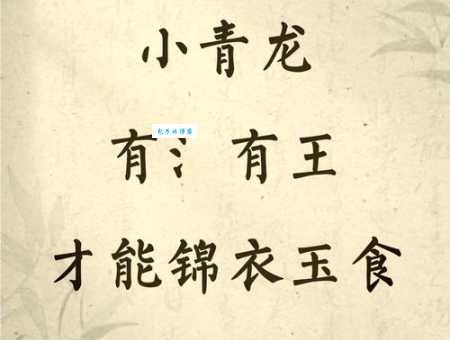 小青龙
有氵有王
才能锦衣玉食